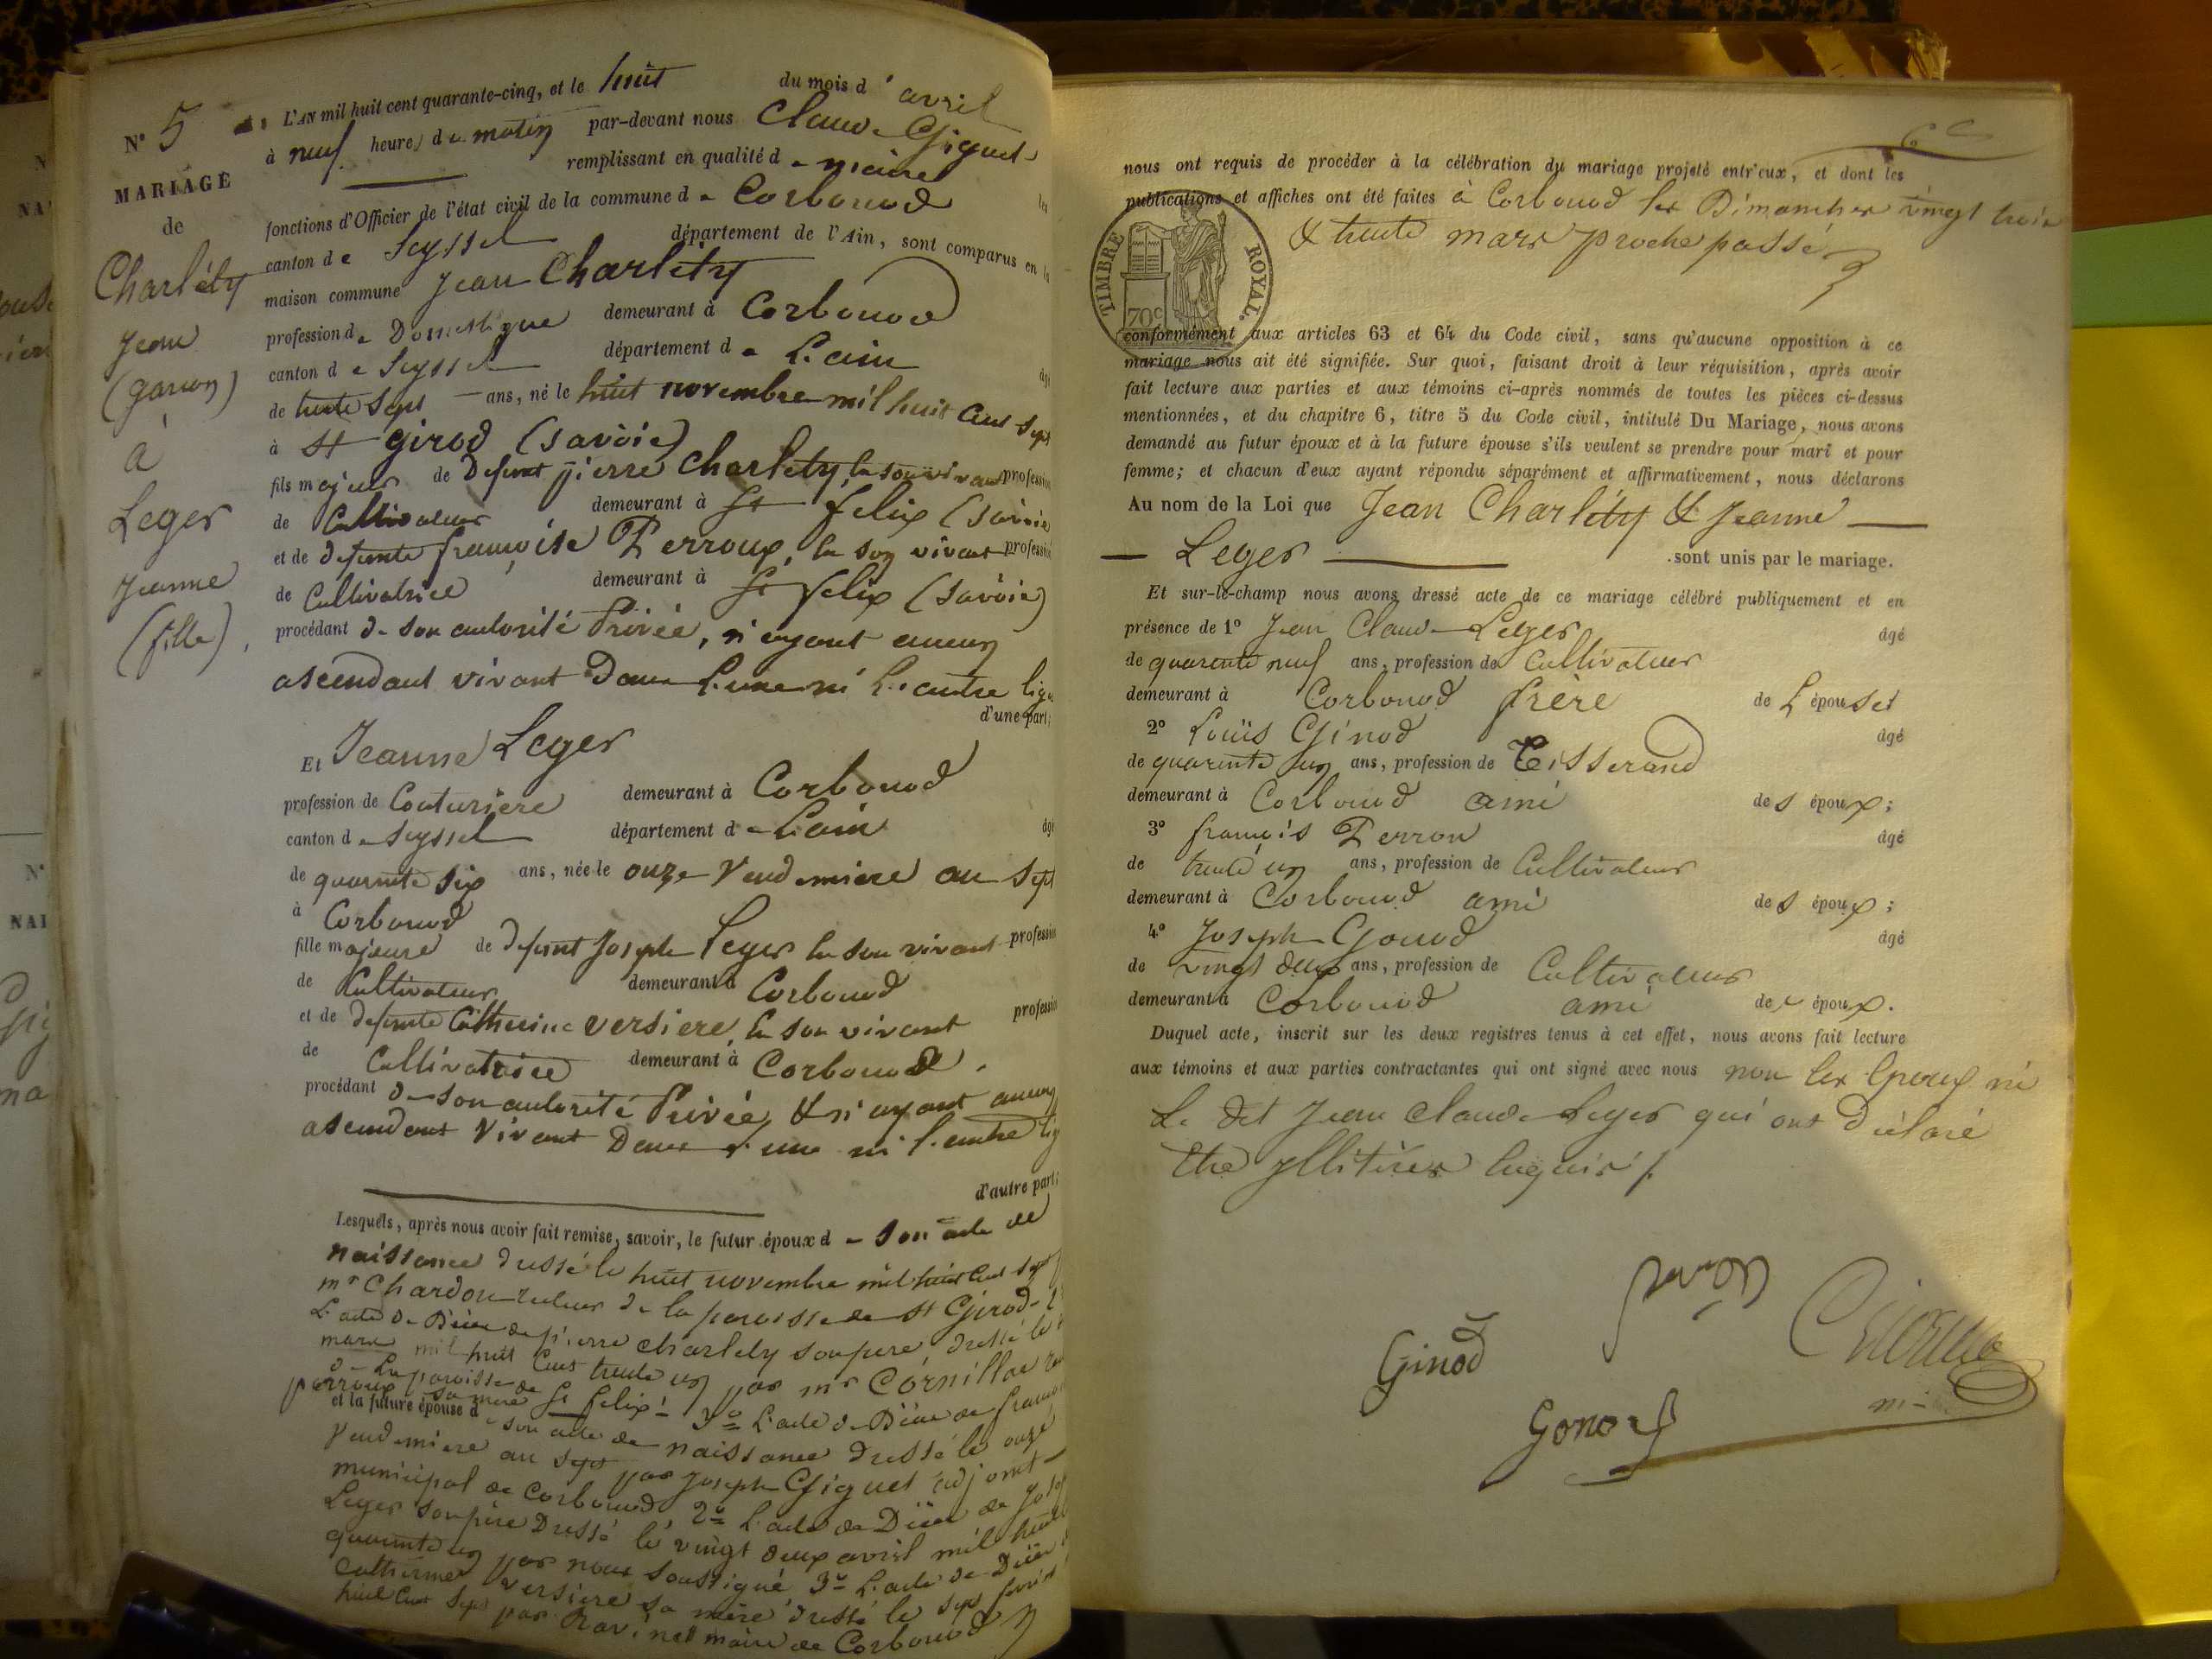 N° 5
MARIAGE
de
Charléty
Jean
(garçon)
à
Leger
Jeanne
(fille)
L'AN mil huit cent quarante-cinq, et le huit du mois d'avril
à neuf heures du matin par-devant nous Claude Giguet
remplissant en qualité de maire les
fonctions d'Officier de l'état civil de la commune de Corbonod
canton de Seyssel département de l'Ain, sont comparus en la
maison commune Jean Charléty
profession de Domestique demeurant à Corbonod
canton de Seyssel département de L'ain âgé
de trente sept ans, né le huit novembre mil huit cent sept
à St girod (savoie)
fils majeur de defunt pierre Charlety, en son vivant profession
de Cultivateur demeurant à St felix (savoie
et de defunte françoise Perroux, en son vivant profession
de Cultivatrice demeurant à St felix (savoie)
procédant de son autorité Privée, n'ayant aucun
ascendant vivant Dans L'une ni L'autre ligne
d'une part;
Et Jeanne Leger
profession de Couturiere demeurant à Corbonod
canton de Seyssel département de L'ain âgé
de quarante six ans, née le onze Vendemiere an sept
à Corbonod
fille majeure de defunt Joseph Leger en son vivant profession
de Cultivateur demeurant à Corbonod
et de defunte Catherine versiere, en son vivant profession
de Cultivatrice demeurant à Corbonod,
procédant de son autorité Privée, & n'ayant aucun
ascendant vivant Dans l'une ni l'autre lig
d'autre part;
Lesquels, après nous avoir fait remise, savoir, le futur époux de son acte de
naissance dressé le huit novembre mil huit cent sept
mr Chardon recteur de la paroisse de St Girod
L'acte de Décès de pierre charlety son pere dressé le
mars mil huit cent trente un par mr Cornillac
de La paroisse de St felix 3° L'acte de Décès de franço
perroux sa mere
et la future épouse de son acte de naissance dressé le onze
Vendemiere an sept par Joseph Giguet adjoint
municipal de Corbonod, 2° L'acte de Décès de Jos
Leger son père Dressé le vingt deux avril mil huit
quarante un par nous soussigné 3° L'acte de Décès
Catherine versiere sa mère dressé le sept fevrier
huit cent sept par Ravinet maire de Corbonod
nous ont requis de procéder à la célébration du mariage projeté entr'eux, et dont les
publications et affiches ont été faites à Corbonod les Dimanches vingt trois
& trente mars proche passé
TIMBRE ROYAL.
70c
conformément aux articles 63 et 64 du Code civil, sans qu'aucune opposition à ce
mariage nous ait été signifiée. Sur quoi, faisant droit à leur réquisition, après avoir
fait lecture aux parties et aux témoins ci-après nommés de toutes les pièces ci-dessus
mentionnées, et du chapitre 6, titre 5 du Code civil, intitulé Du Mariage, nous avons
demandé au futur époux et à la future épouse s'ils veulent se prendre pour mari et pour
femme; et chacun d'eux ayant répondu séparément et affirmativement, nous déclarons
Au nom de la Loi que Jean Charléty & Jeanne
Leger sont unis par le mariage.
Et sur-le-champ nous avons dressé acte de ce mariage célébré publiquement et en
présence de 1° Jean Claude Leger âgé
de quarente neuf ans, profession de Cultivateur
demeurant à Corbonod frère de L'épouse;
2° Louis Ginod âgé
de quarente un ans, profession de Tisserand
demeurant à Corbonod ami des époux;
3° françois Perron âgé
de trente un ans, profession de Cultivateur
demeurant à Corbonod ami des époux;
4° Joseph Gonod âgé
de vingt deux ans, profession de Cultivateur
demeurant à Corbonod ami des époux.
Duquel acte, inscrit sur les deux registres tenus à cet effet, nous avons fait lecture
aux témoins et aux parties contractantes qui ont signé avec nous non les Epoux ni
Le dit Jean Claude Leger qui ont déclaré
Etre yllitérés Enquis
Ginod
Gonod